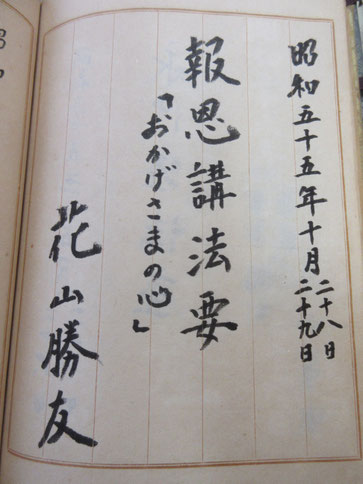 昭和五十五年十月二十八日
二十九日
報恩講法要
「おかげさまの心」
花山勝友